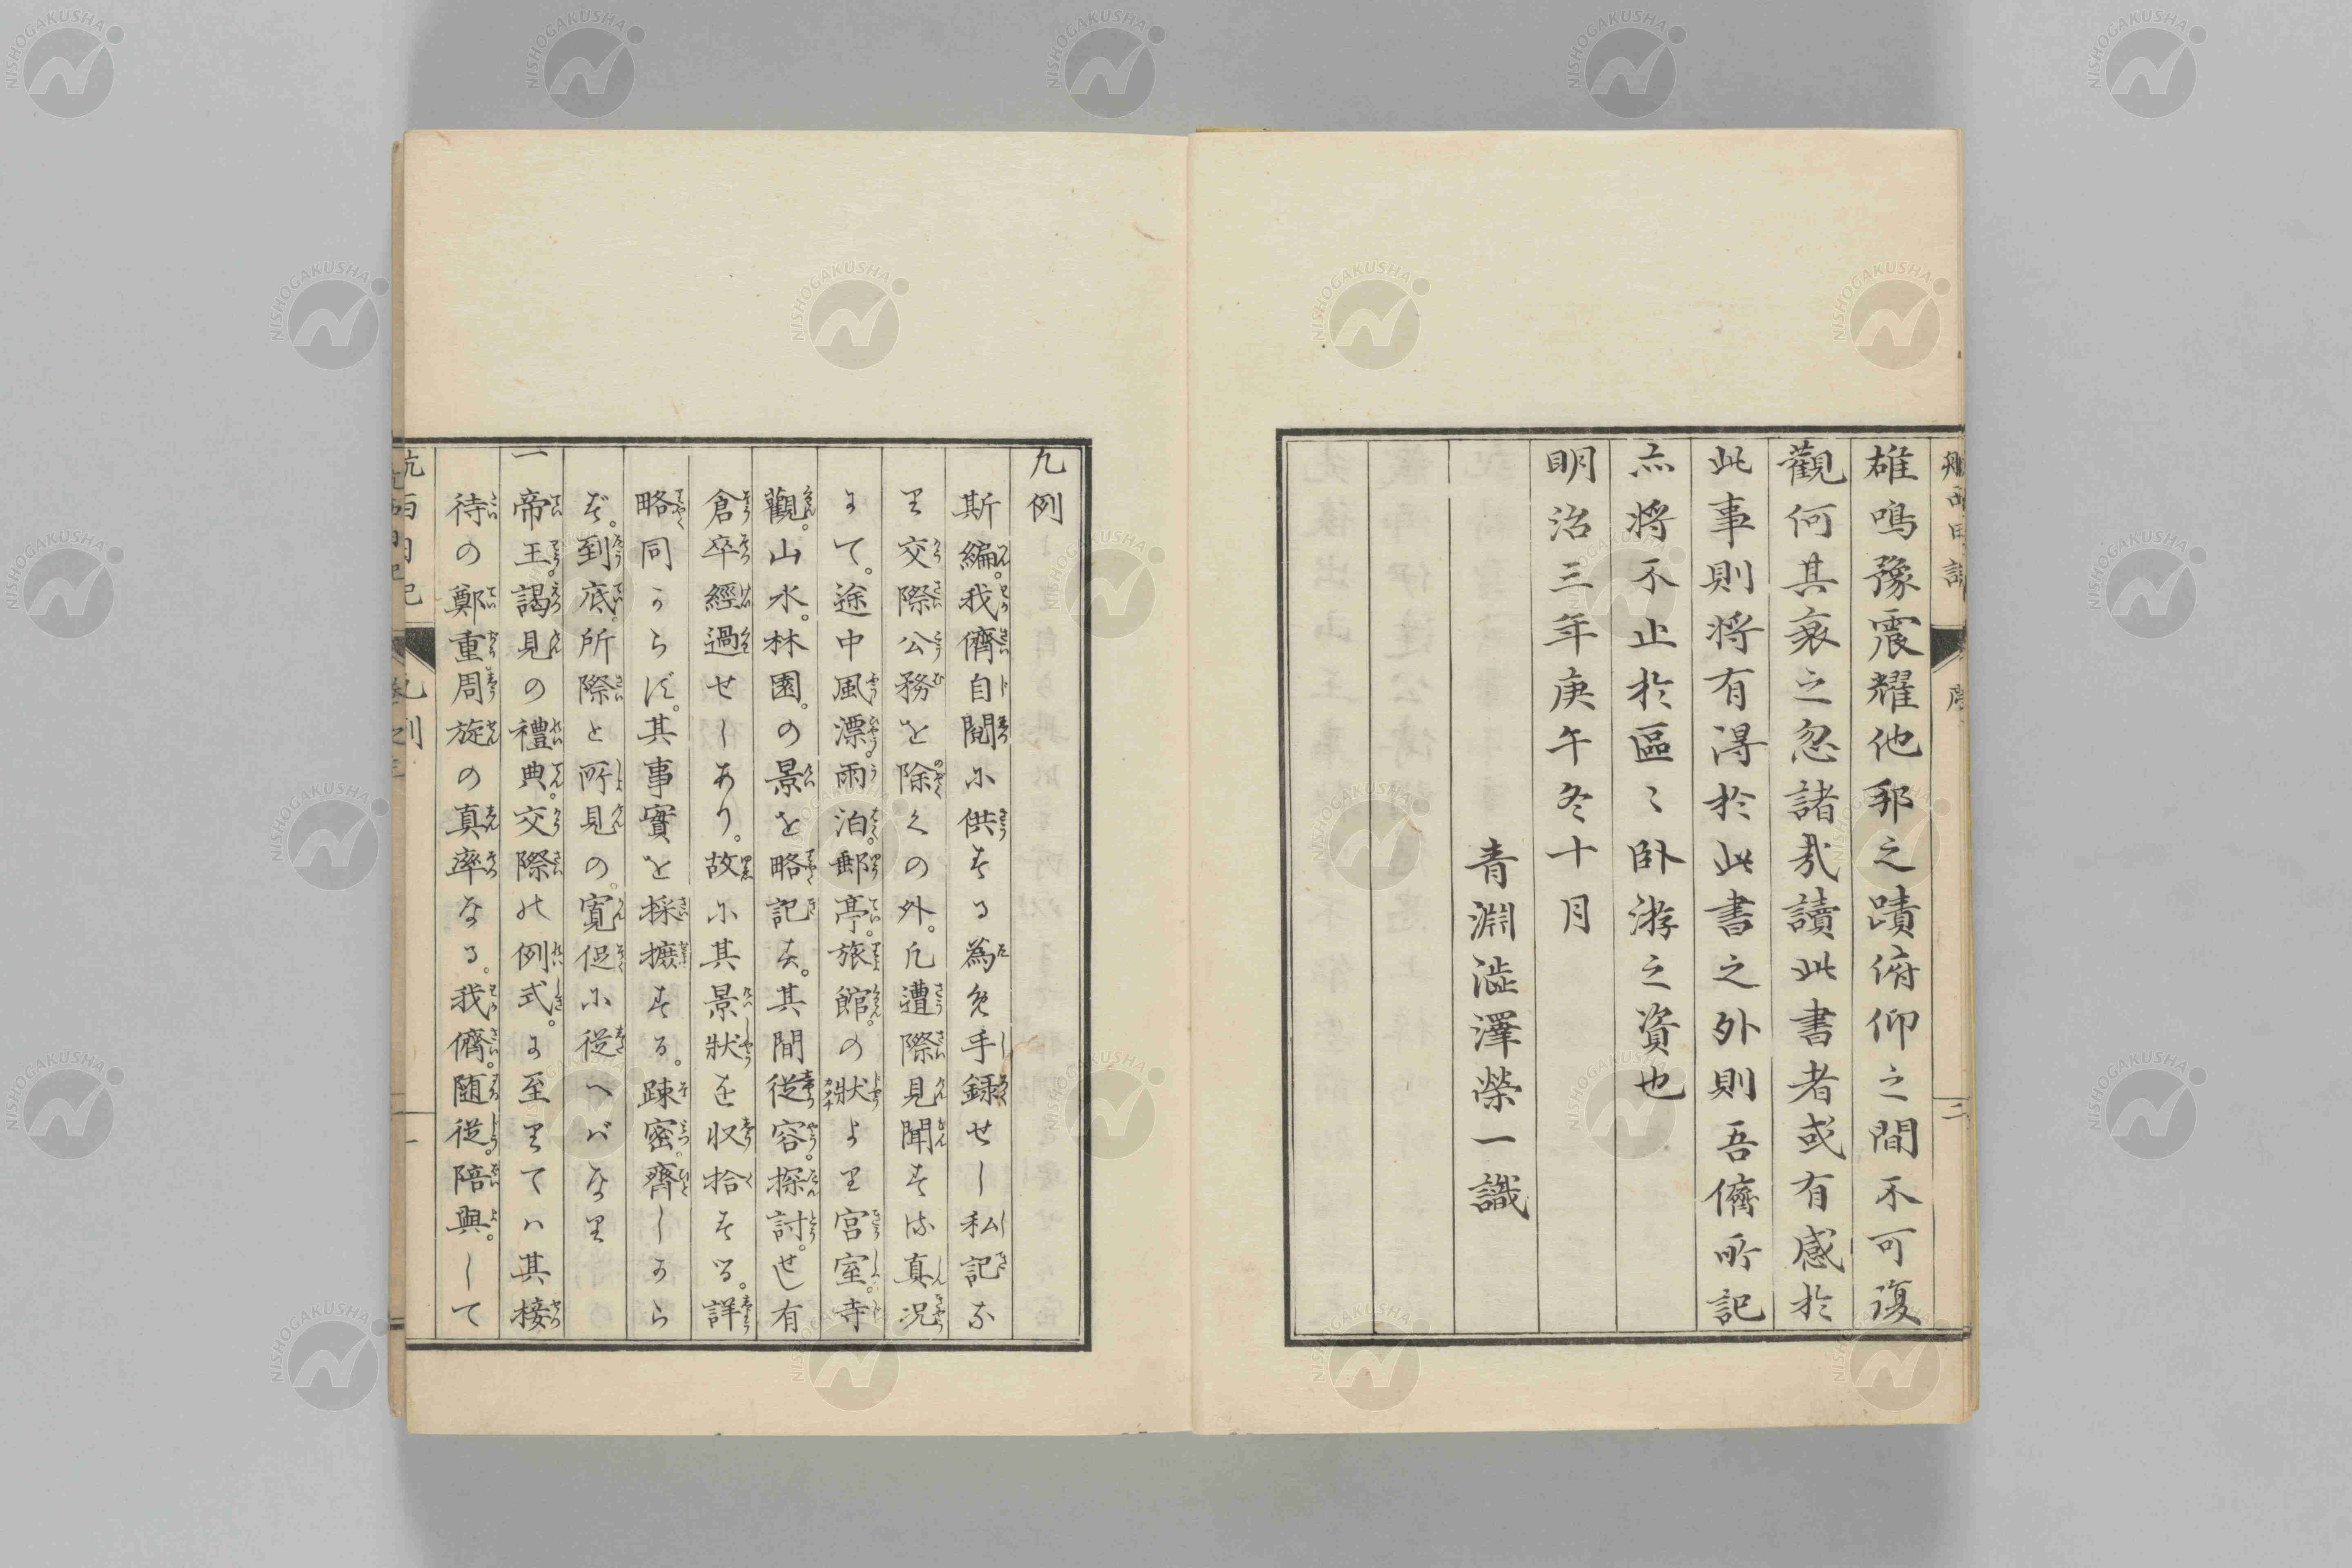 雄鳴豫震耀他邦之蹟俯仰之間不可復
觀何其衰之忽諸哉讀此書者或有感於
此事則将有得於此書之外則吾儕所記
亦将不止於區〻卧游之資也
明治三年庚午冬十月
青淵澁澤榮一識
凡例
斯編。我儕自閲に供する為め手録せし私記な
り交際公務を除くの外。凡遭際見聞する真况
にて。途中風漂。雨泊。郵亭。旅館。の狀より宮室。寺
觀。山水。林園。の景を略記す。其間從容。探討。せし有
倉卒經過せしあり。故に其景狀を収拾する。詳
略同からず。其事實を採摭する。踈密。齊しから
ず。到底。所際と所見の。寛促に從へバなり
一帝王。謁見の禮典。交際の例式。に至りてハ其接
待の鄭重周旋の真率なる。我儕。随從。陪輿。して
航西日記
凡例
一
NISHOGAKUSHA